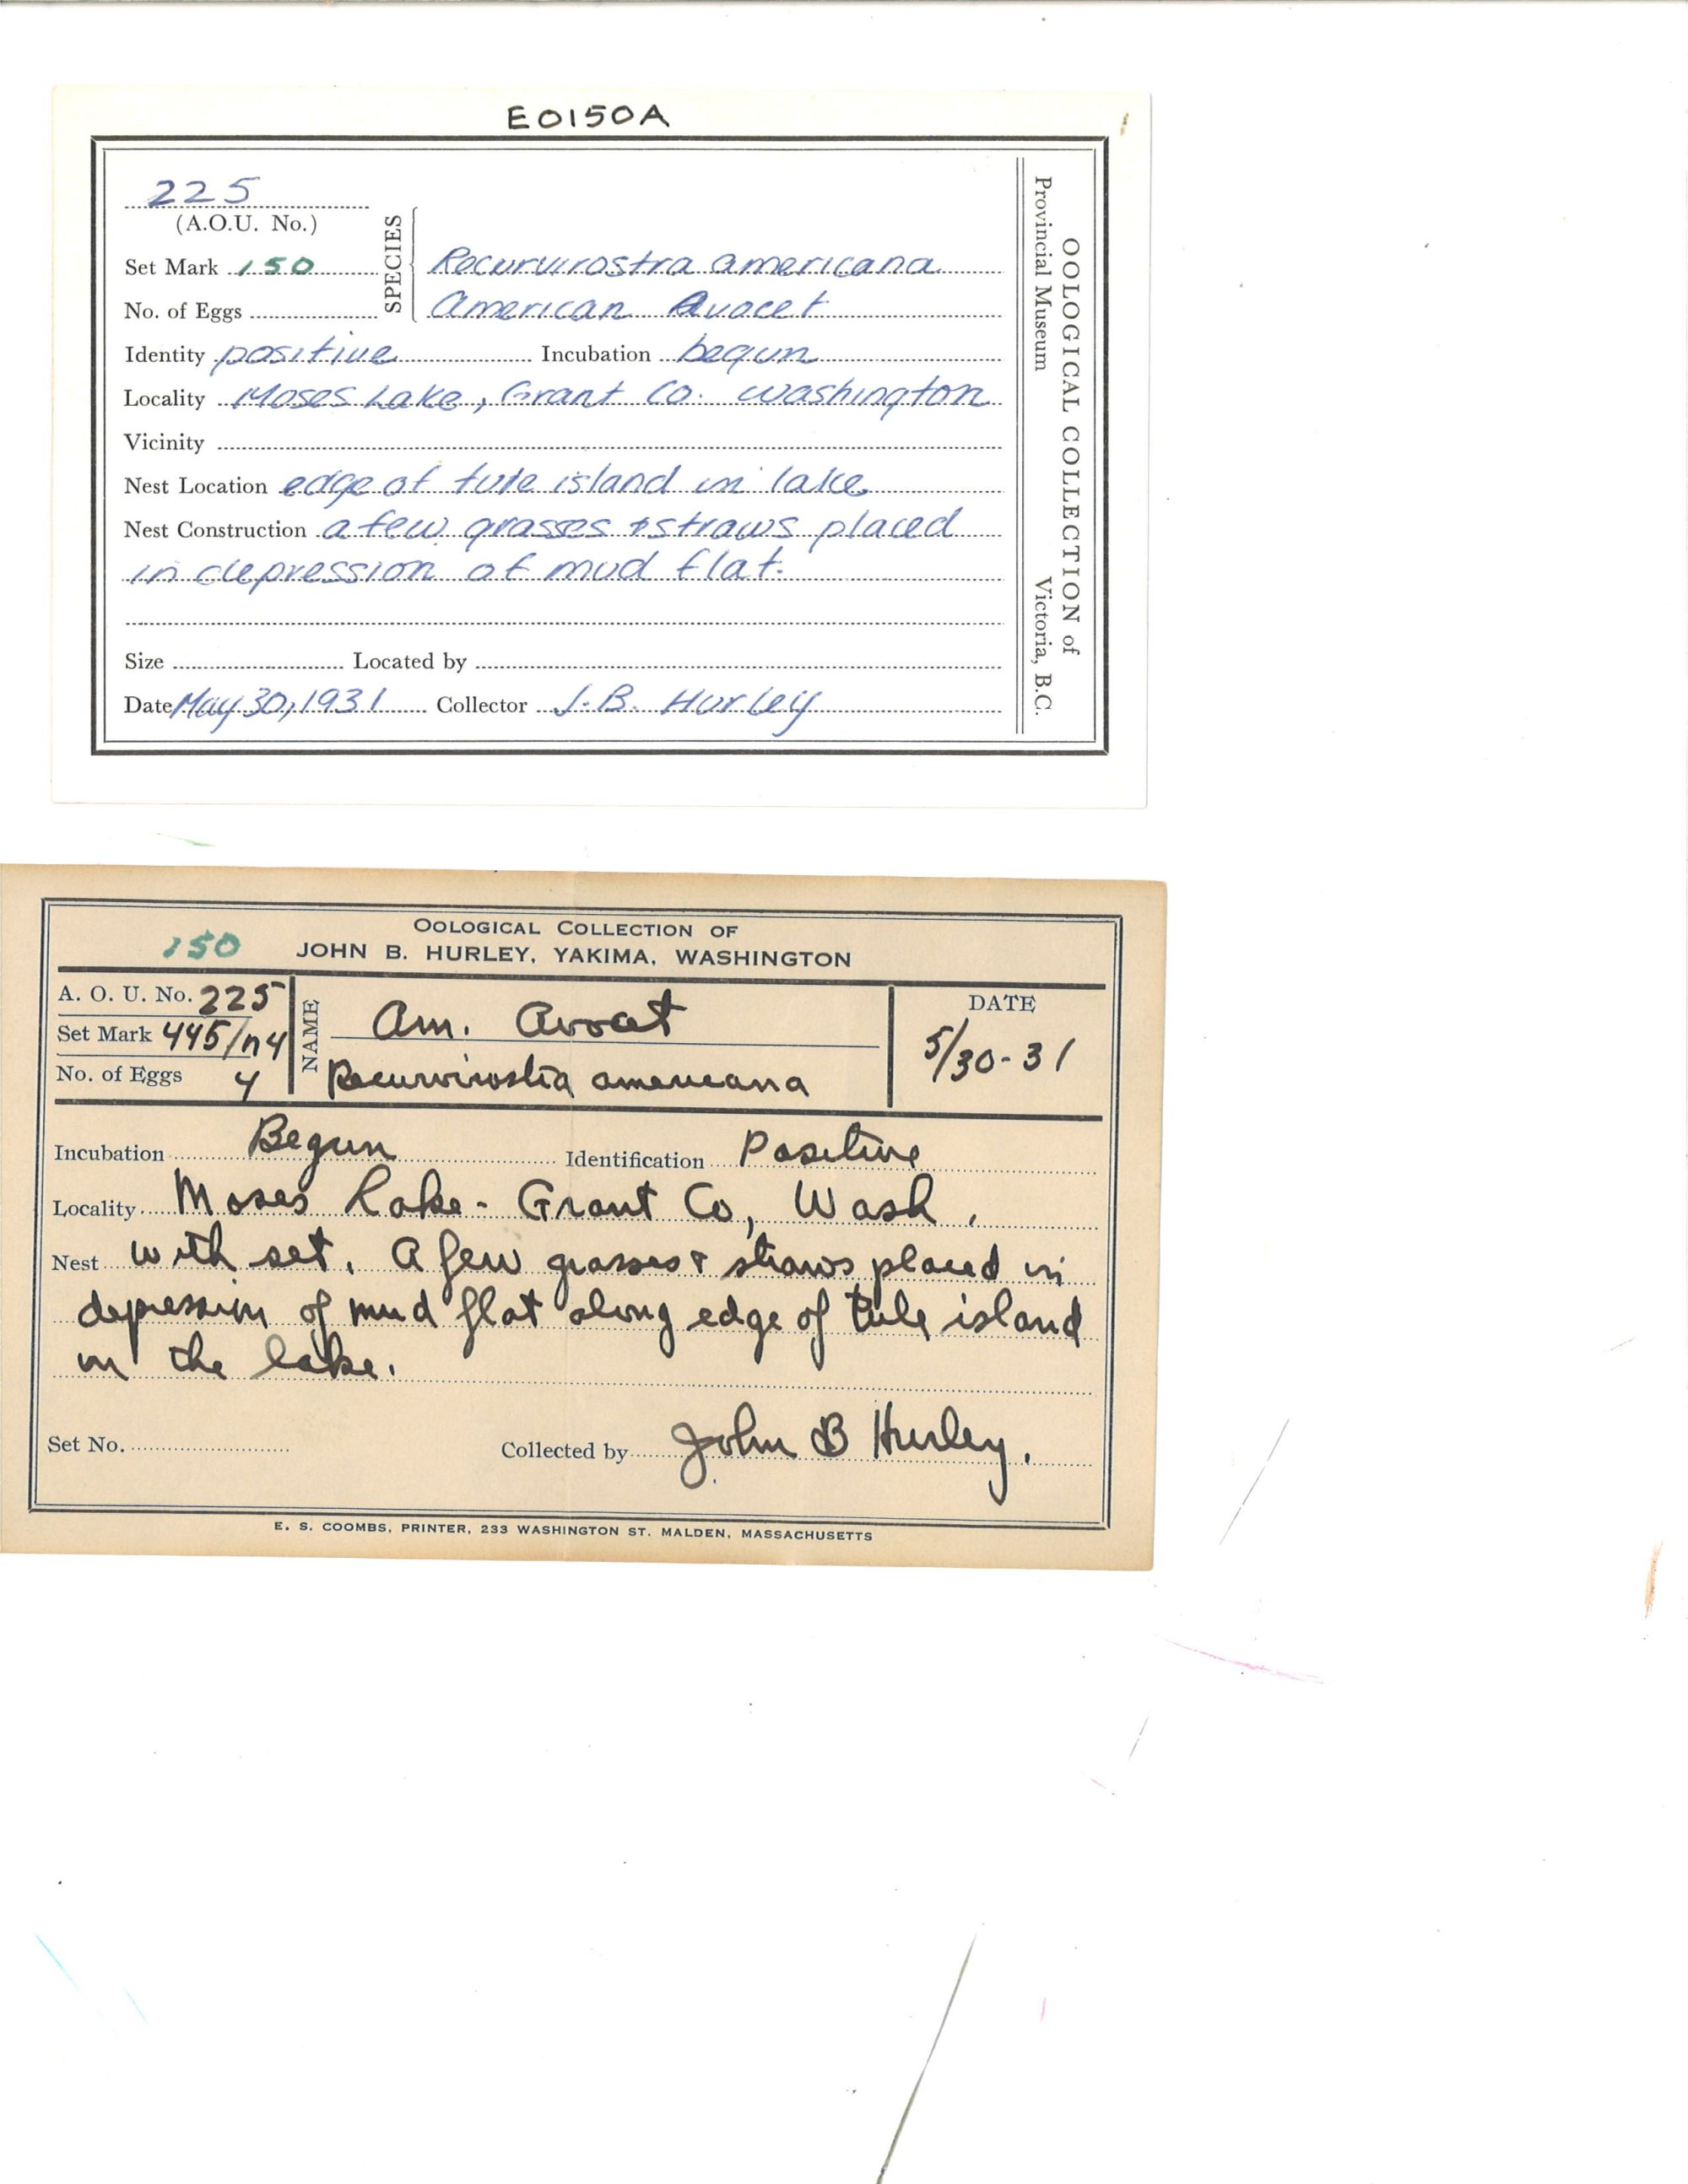 E0150A
225
(A.O.U. No.)
SPECIES
Set Mark 150
Recurvirostra americana
No. of Eggs
American Avocet
Identity positive Incubation begun
Locality Moses Lake, Grant Co. Washington
Vicinity
Nest Location edge of tule island in lake
Nest Construction a few grasses & straws placed
in depression of mud flat.
Size Located by
Date May 30, 1931 Collector J.B. Hurley
OOLOGICAL COLLECTION of
Provincial Museum Victoria, B.C.
OOLOGICAL COLLECTION OF
150 JOHN B. HURLEY, YAKIMA, WASHINGTON
A. O. U. No. 225
Set Mark 445/n4
No. of Eggs 4
NAME
Am. Avocet
Recurvirostra americana
DATE
5/30-31
Incubation Begun Identification Positive
Locality Moses Lake - Grant Co, Wash.
Nest with set. A few grasses & straws placed in
depression of mud flat along edge of tule island
in the lake.
Set No. Collected by John B Hurley.
E. S. COOMBS, PRINTER, 233 WASHINGTON ST. MALDEN, MASSACHUSETTS